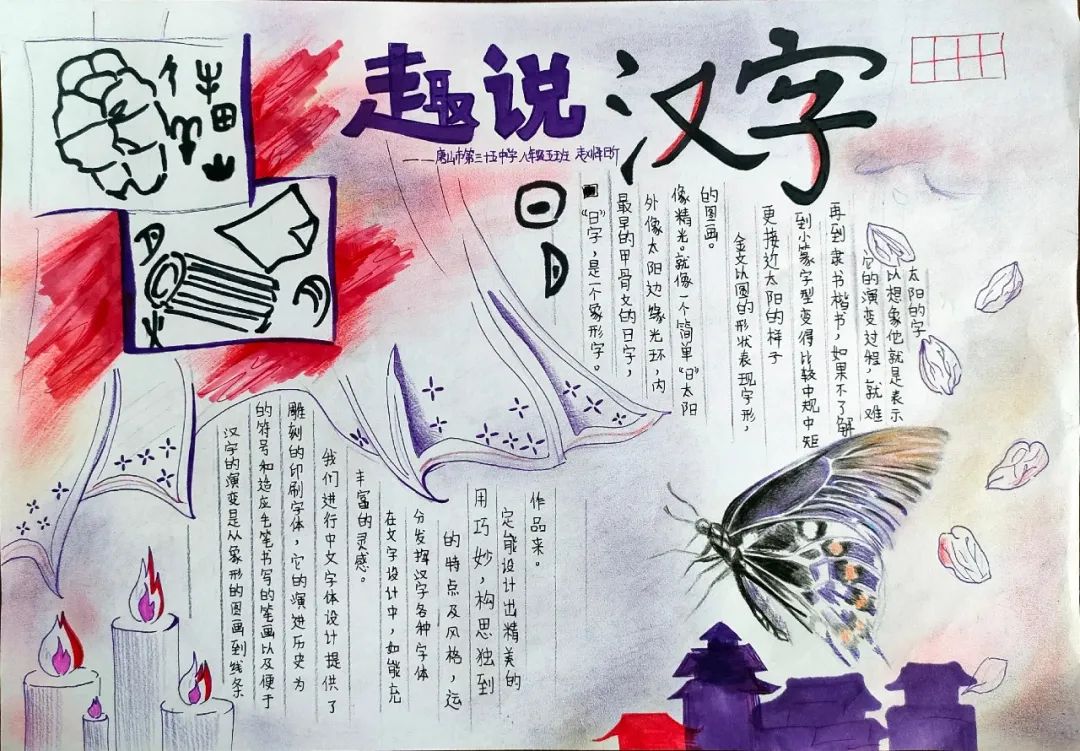 趣说汉字
——唐山市第三十五中学 八年级五班
"日"字，是一个象形字。
最早的甲骨文的日字，
外像太阳边缘光环，内
像精光。就像一个简单"日"太阳
的图画。
金文以圆的形状表现字形，
更接近太阳的样子
到小篆字型变得比较中规中矩
再到隶书楷书，如果不了解
的演变过程，就难
以想象他就是表示
太阳的字
汉字的演变是从象形的图画到线条
的符号和适应毛笔书写的笔画以及便于
雕刻的印刷字体，它的演进历史为
我们进行中文字体设计提供了
丰富的灵感。
在文字设计中，如能充
分发挥汉字各种字体
的特点及风格，运
用巧妙，构思独到
定能设计出精美的
作品来。